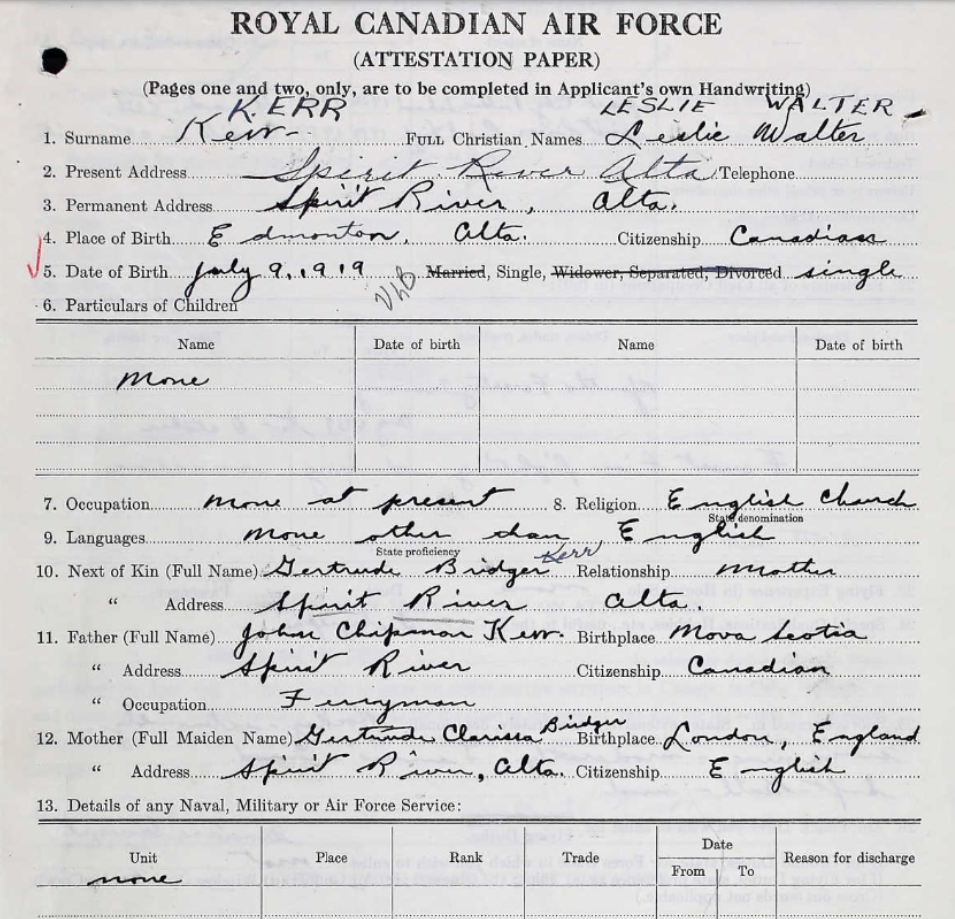 ROYAL CANADIAN AIR FORCE
(ATTESTATION PAPER)
(Pages one and two, only, are to be completed in Applicant's own Handwriting)
KERR LESLIE WALTER
1. Surname Kerr Full Christian Names Leslie Walter
2. Present Address Spirit River Alta Telephone
3. Permanent Address Spirit River, Alta.
4. Place of Birth Edmonton, Alta. Citizenship Canadian
5. Date of Birth July 9, 1919 Married, Single, Widower, Separated, Divorced single
6. Particulars of Children
Name Date of birth Name Date of birth
None
7. Occupation None at present 8. Religion English Church
State denomination
9. Languages None other than English
State proficiency
Kerr
10. Next of Kin (Full Name) Gertrude Bridger Relationship Mother
" Address Spirit River Alta.
11. Father (Full Name) John Chipman Kerr. Birthplace Nova Scotia
" Address Spirit River Citizenship Canadian
" Occupation Ferryman
12. Mother (Full Maiden Name) Gertrude Clarissa Bridger Birthplace London, England
" Address Spirit River, Alta. Citizenship English
13. Details of any Naval, Military or Air Force Service:
Unit Place Rank Trade Date From To Reason for discharge
None